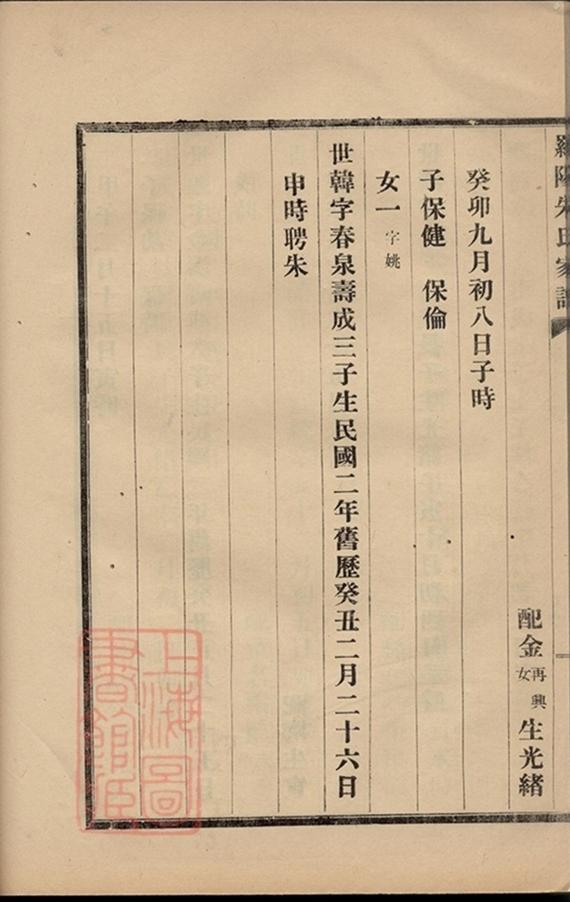 羅陽朱氏家譜
配金再興女生光緒
癸卯九月初八日子時
子保健 保倫
女一字姚
世韓字春泉壽成三子生民國二年舊歷癸丑二月二十六日
申時聘朱
上海圖書館藏